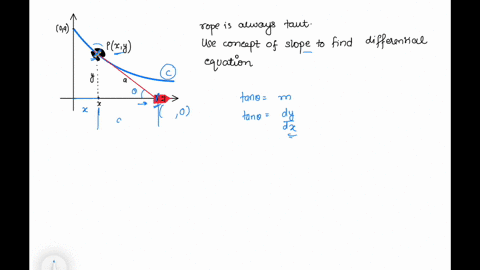 rope is always taut.
Use concept of slope to find differential
equation
(0,a)
P(x,y)
C
y
a
θ
x
x
( ,0)
tanθ = m
tanθ = dy
dx